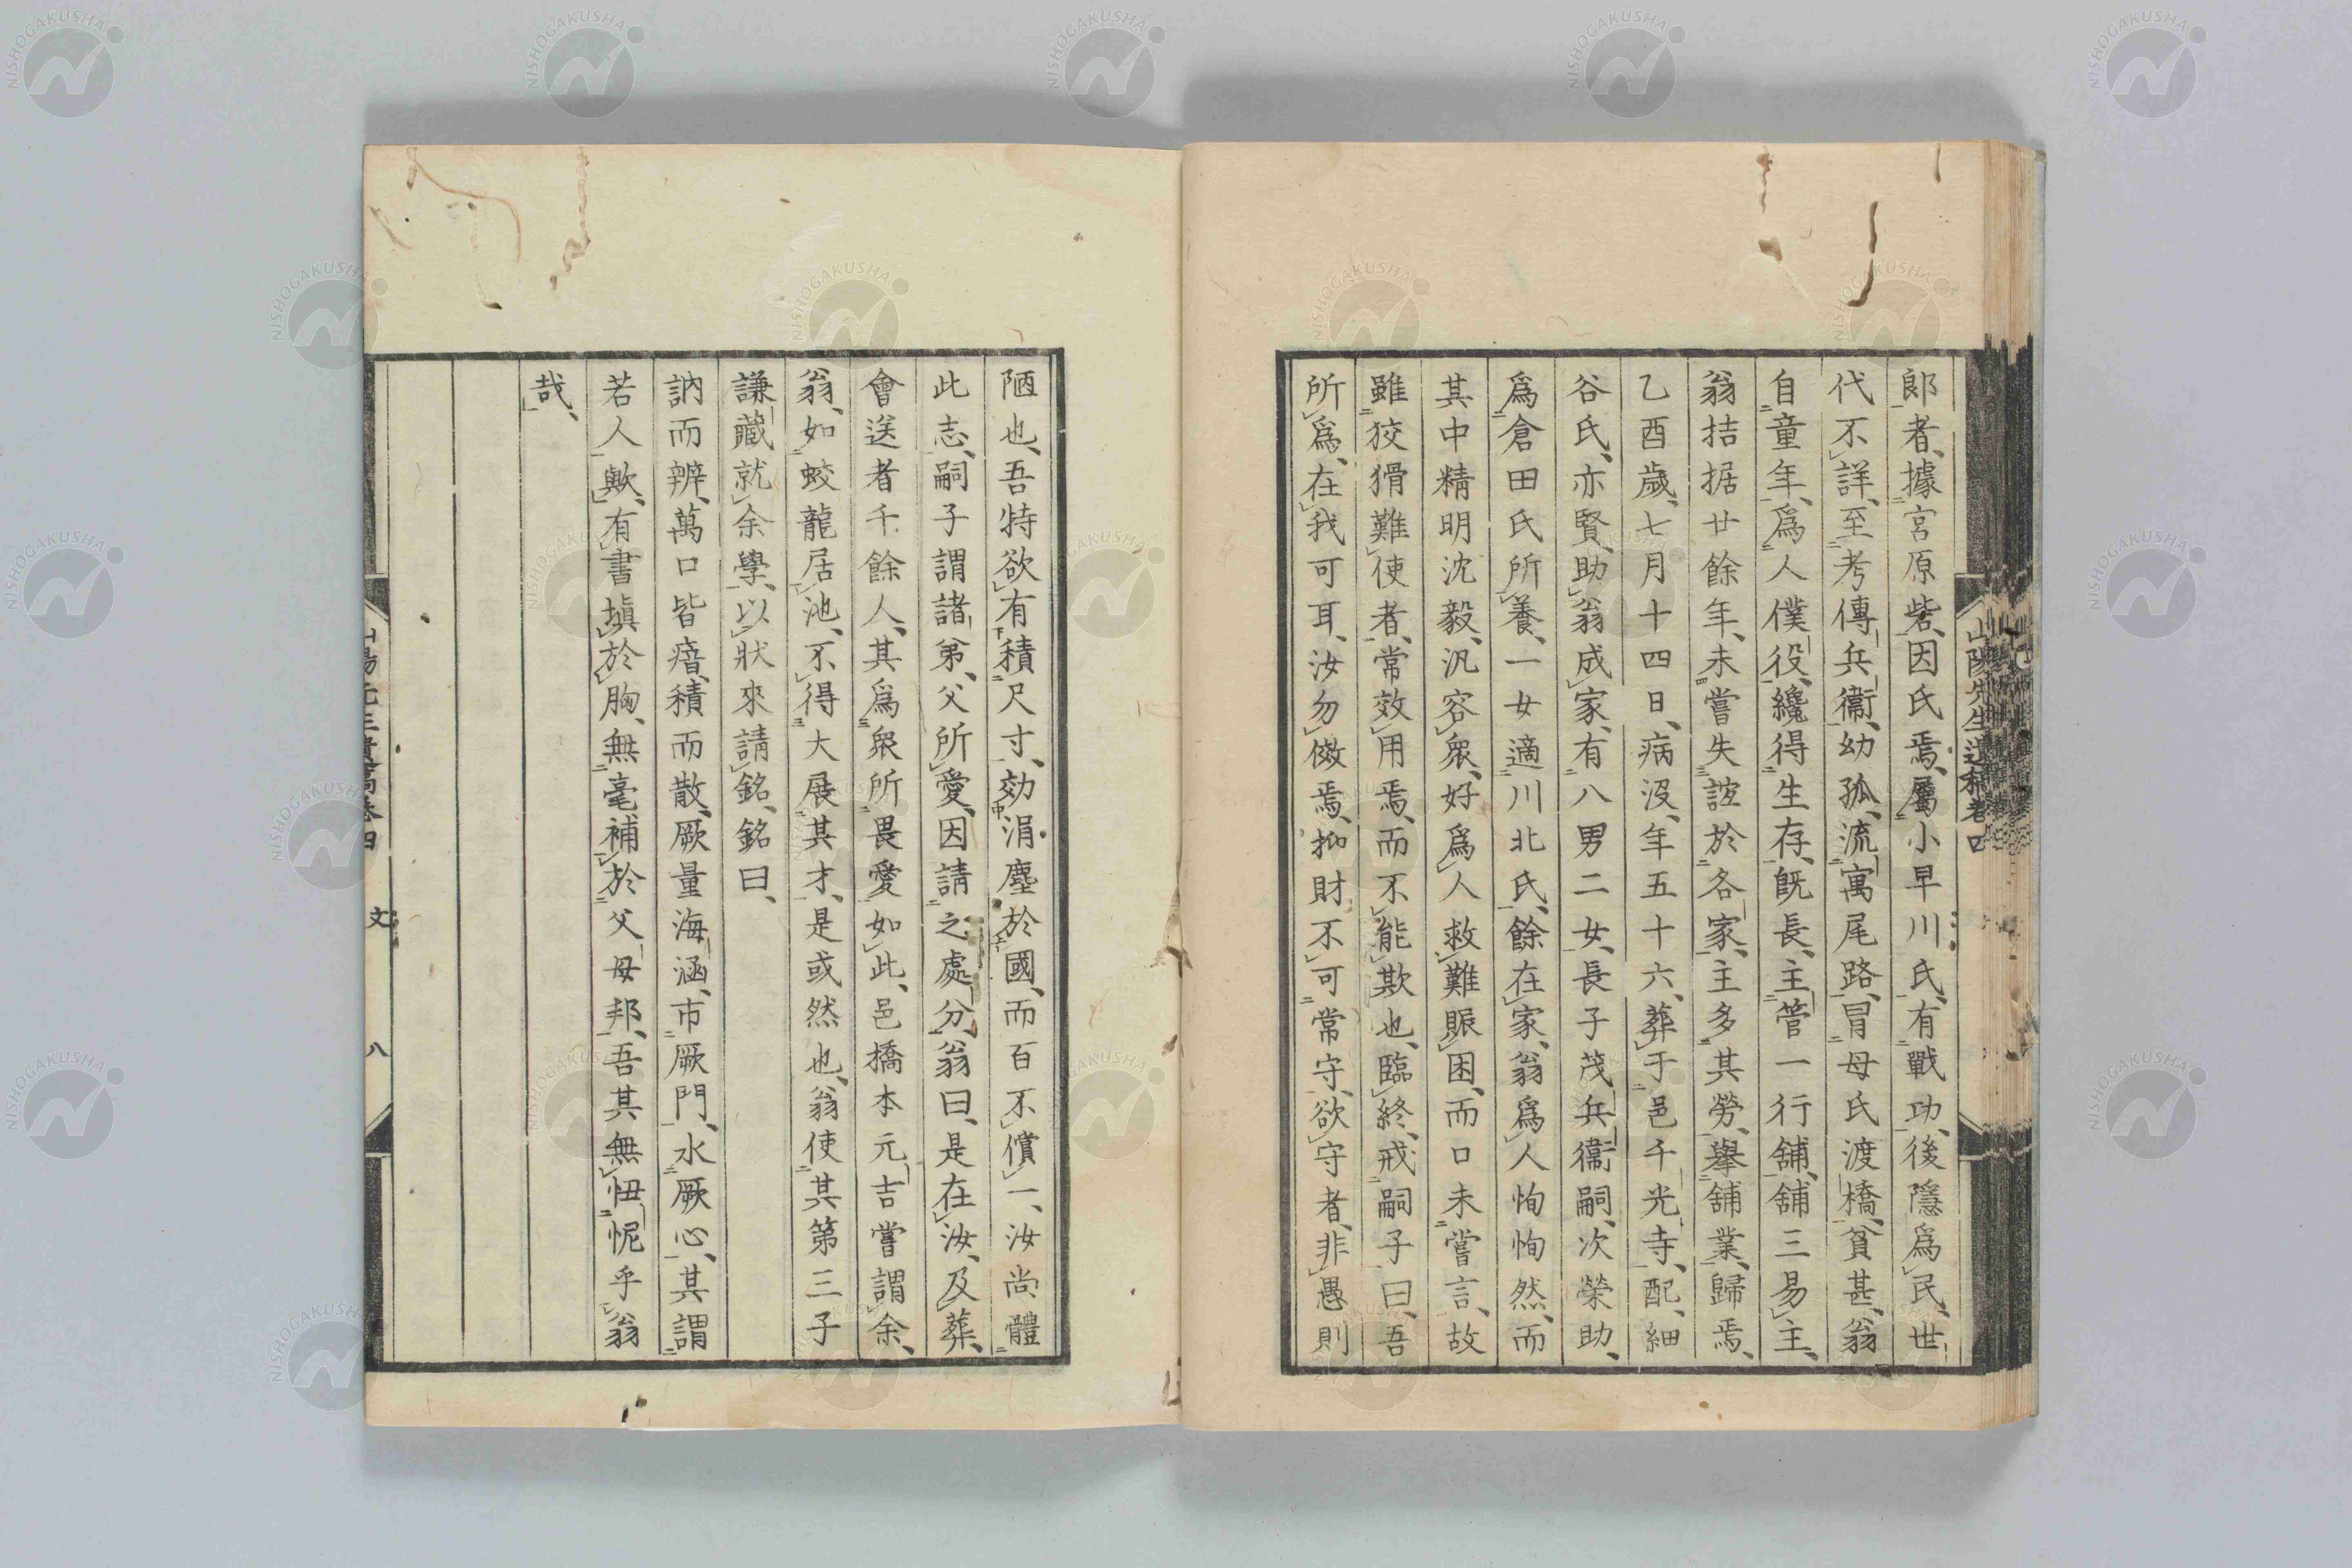 郞者、據宮原砦、因氏焉、屬小早川氏、有戰功、後隱爲民、世
代不詳、至考傳兵衞、幼孤、流寓尾路、冒母氏渡橋、貧甚、翁
自童年、爲人僕役、纔得生存、旣長、主管一行舖、舖三易主、
翁拮据廿餘年、未嘗失諠於各家、主多其勞、擧舖業、歸焉、
乙酉歲、七月十四日、病沒、年五十六、葬于邑千光寺、配、細
谷氏、亦賢、助翁成家、有八男二女、長子茂兵衞嗣、次榮助、
爲倉田氏所養、一女適川北氏、餘在家、翁爲人恂恂然、而
其中精明沈毅、汎容衆、好爲人救難賑困、而口未嘗言、故
雖狡猾難使者、常效用焉、而不能欺也、臨終、戒嗣子曰、吾
所爲、在我可耳、汝勿傚焉、抑財不可常守、欲守者、非愚則
陋也、吾特欲有積尺寸、効涓塵於國、而百不償一、汝尚體
此志、嗣子謂諸弟、父所愛、因請之處分、翁曰、是在汝、及葬、
會送者千餘人、其爲衆所畏愛如此、邑橋本元吉嘗謂余、
翁、如蛟龍居池、不得大展其才、是或然也、翁使其第三子
謙藏就余學、以狀來請銘、銘曰、
訥而辨、萬口皆瘖、積而散、厥量海涵、市厥門、水厥心、其謂
若人歟、有書塡於胸、無毫補於父母邦、吾其無忸怩乎翁
哉、
山陽先生遺稿卷四
文
八
NISHOGAKUSHA